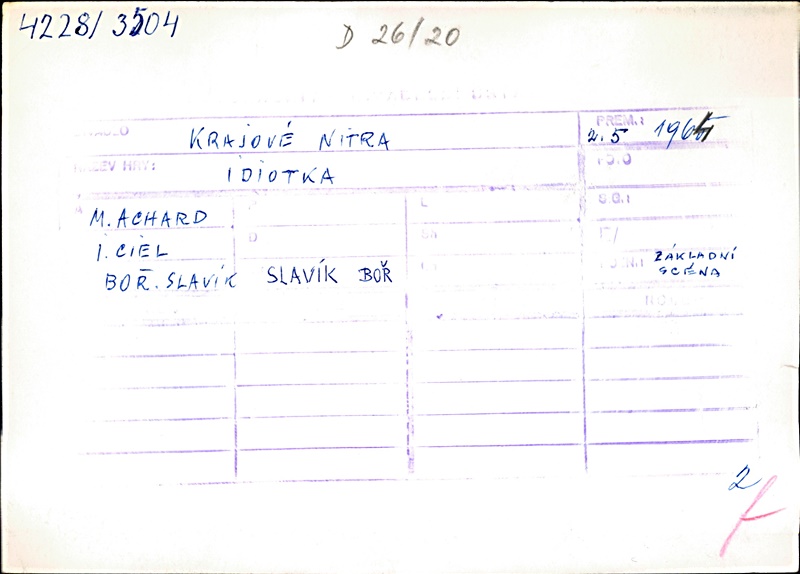 4228/3504
D 26/20
KRAJOVÉ NITRA
PREM.:
2.5 196
NÁZEV HRY:
IDIOTKA
S.G.:
M. ACHARD
I. CIEL
BOŘ. SLAVÍK SLAVÍK BOŘ
ZÁKLADNÍ
SCÉNA
2